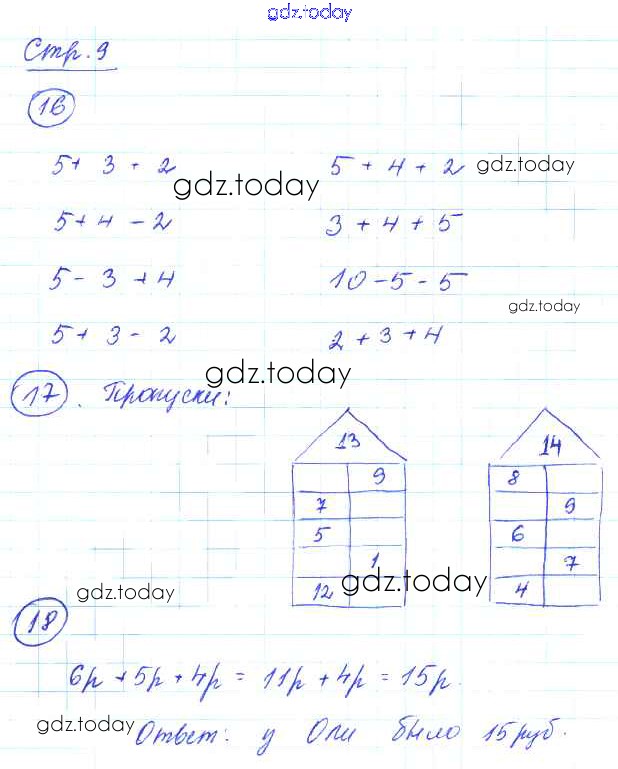 gdz.today
Стр. 9
16
5 + 3 - 2 5 + 4 + 2 gdz.today
gdz.today
5 + 4 - 2 3 + 4 + 5
5 - 3 + 4 10 - 5 - 5
gdz.today
5 + 3 - 2 2 + 3 + 4
gdz.today
17. Пропуски:
13 14
9 8
7 9
5 6
1 7
gdz.today 12 gdz.today 4
18
6р + 5р + 4р = 11р + 4р = 15р.
gdz.today Ответ: у Оли было 15 руб.